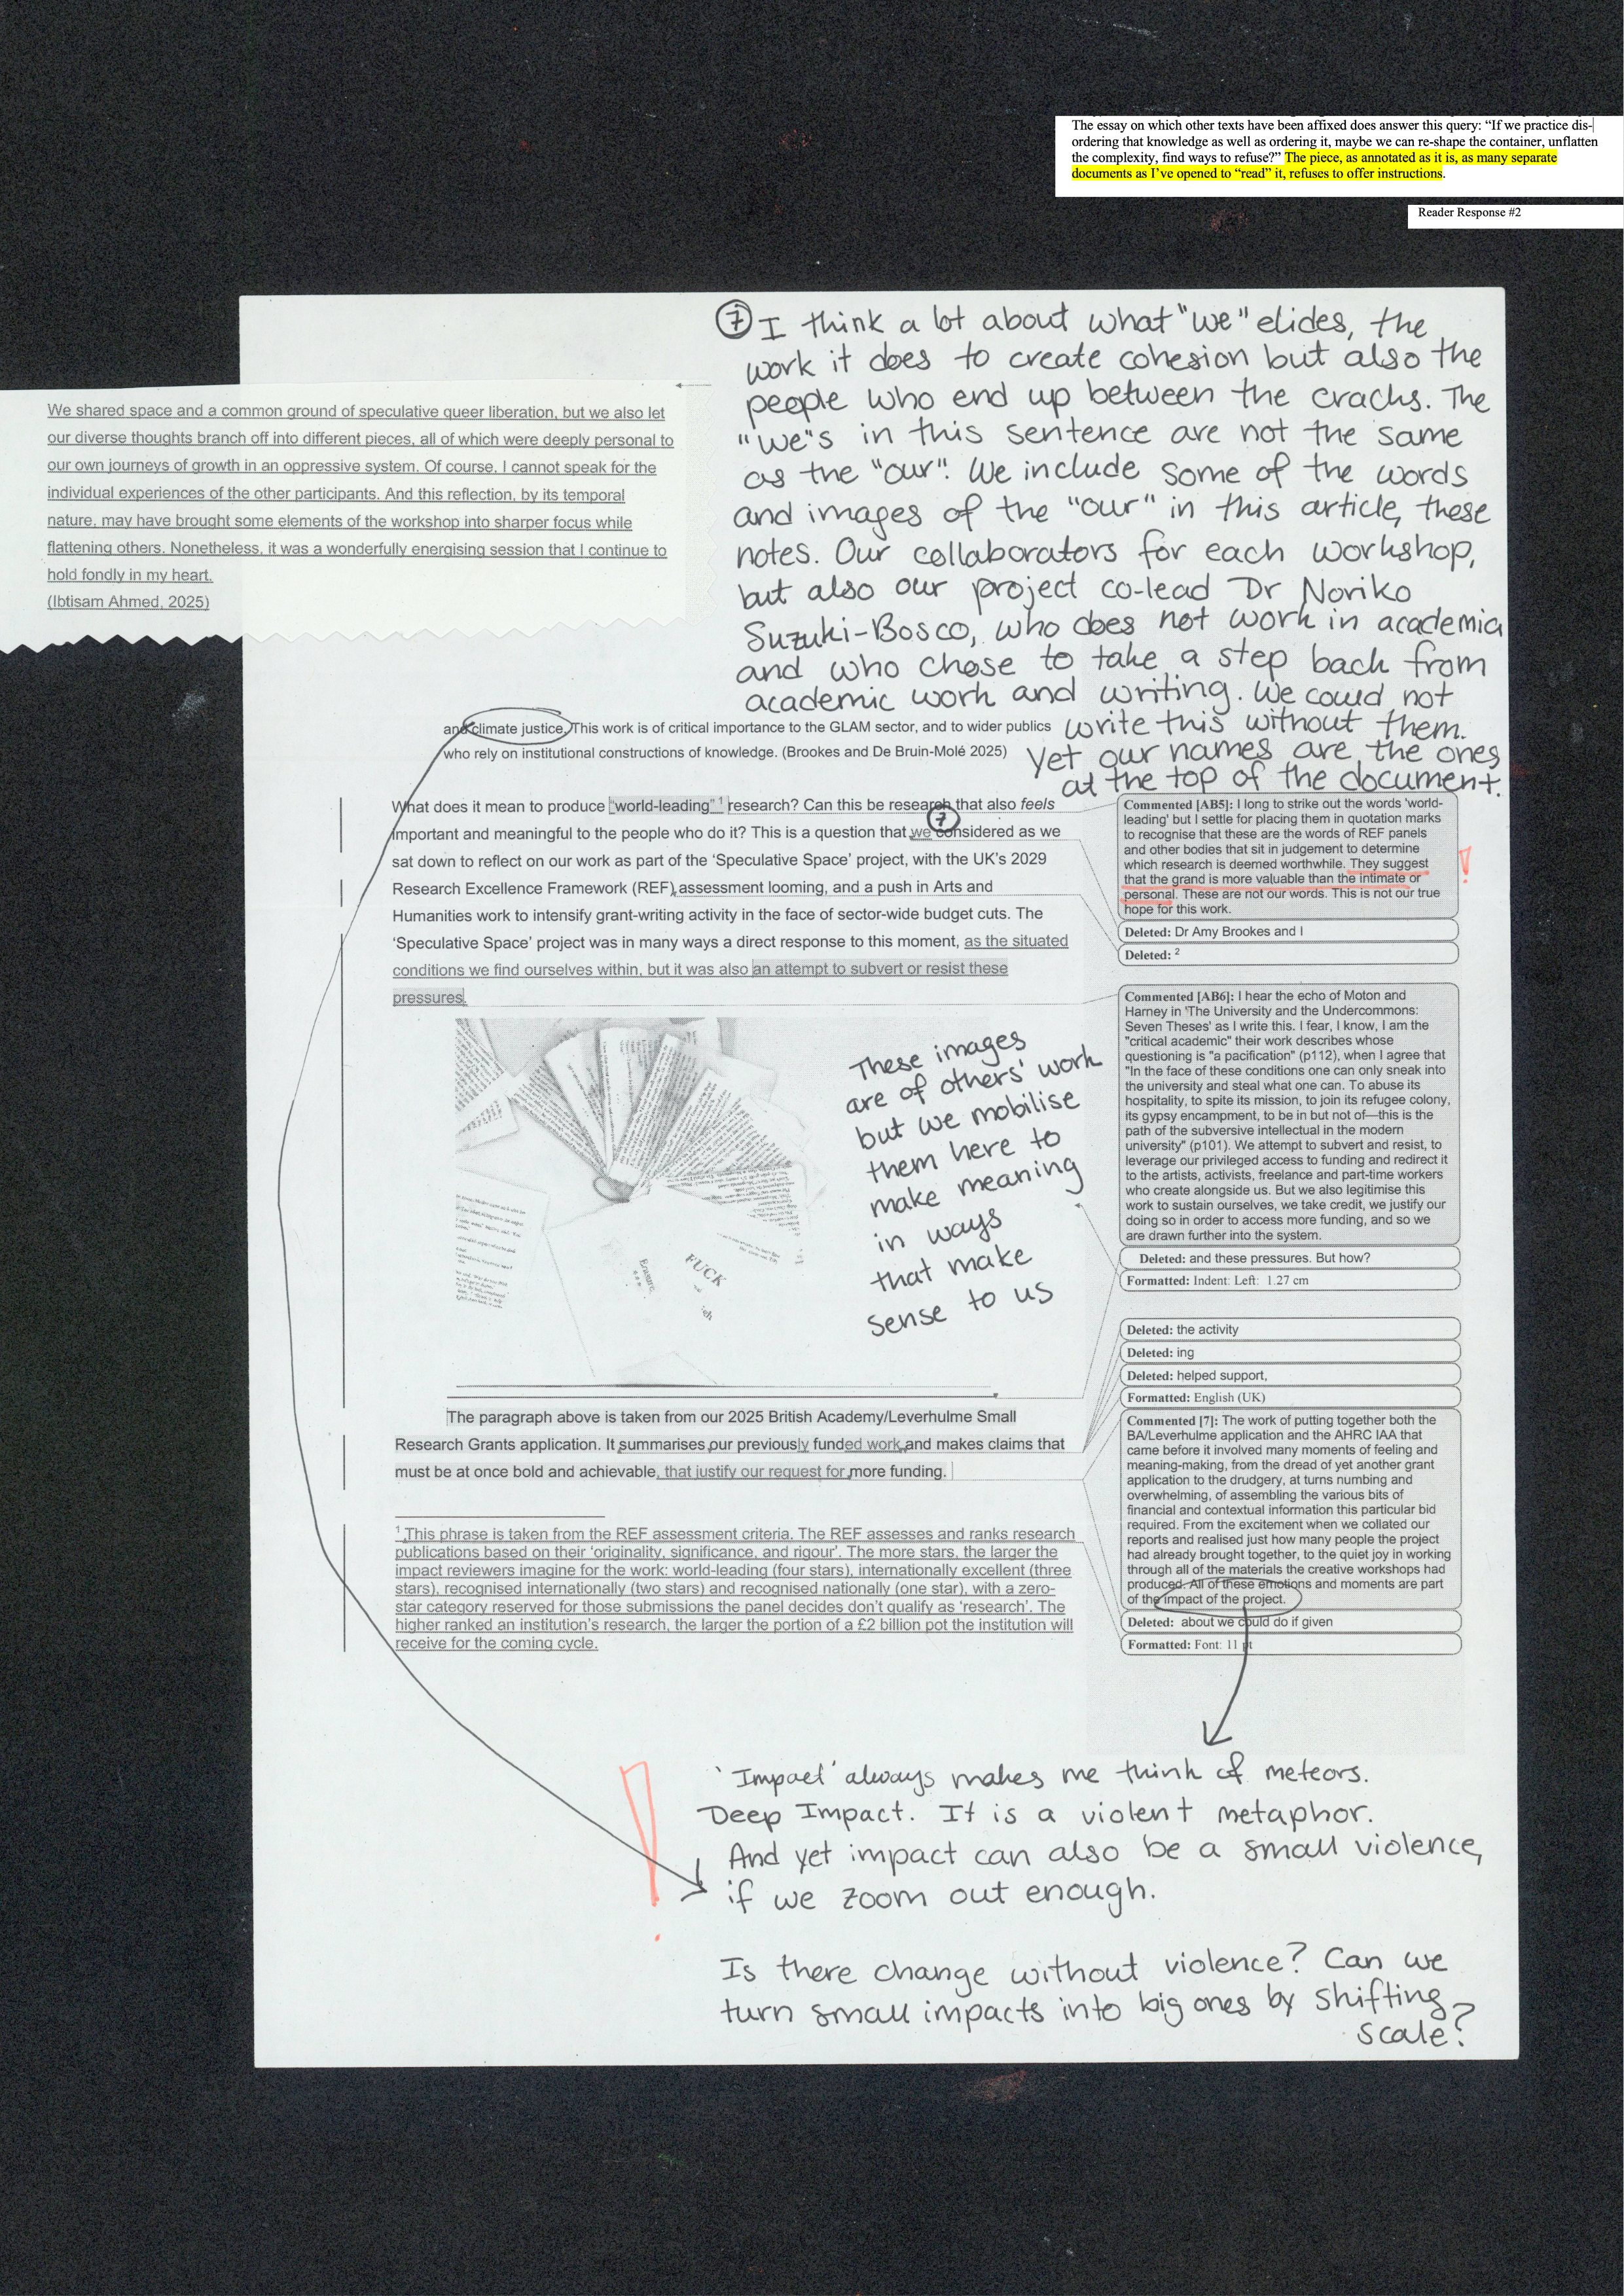 The essay on which other texts have been affixed does answer this query: “If we practice dis-
ordering that knowledge as well as ordering it, maybe we can re-shape the container, unflatten
the complexity, find ways to refuse?” The piece, as annotated as it is, as many separate
documents as I’ve opened to “read” it, refuses to offer instructions.
Reader Response #2
⑦ I think a lot about what "we" elides, the
work it does to create cohesion but also the
people who end up between the cracks. The
"we"s in this sentence are not the same
as the "our". We include some of the words
and images of the "our" in this article, these
notes. Our collaborators for each workshop,
but also our project co-lead Dr Noriko
Suzuki-Bosco, who does not work in academia
and who chose to take a step back from
academic work and writing. We could not
write this without them.
Yet our names are the ones
at the top of the document.
We shared space and a common ground of speculative queer liberation, but we also let
our diverse thoughts branch off into different pieces, all of which were deeply personal to
our own journeys of growth in an oppressive system. Of course, I cannot speak for the
individual experiences of the other participants. And this reflection, by its temporal
nature, may have brought some elements of the workshop into sharper focus while
flattening others. Nonetheless, it was a wonderfully energising session that I continue to
hold fondly in my heart.
(Ibtisam Ahmed, 2025)
and climate justice. This work is of critical importance to the GLAM sector, and to wider publics
who rely on institutional constructions of knowledge. (Brookes and De Bruin-Molé 2025)
What does it mean to produce “world-leading” 1 research? Can this be research that also feels
important and meaningful to the people who do it? This is a question that we considered as we
⑦
sat down to reflect on our work as part of the ‘Speculative Space’ project, with the UK’s 2029
Research Excellence Framework (REF) assessment looming, and a push in Arts and
Humanities work to intensify grant-writing activity in the face of sector-wide budget cuts. The
‘Speculative Space’ project was in many ways a direct response to this moment, as the situated
conditions we find ourselves within, but it was also an attempt to subvert or resist these
pressures.
Commented [AB5]: I long to strike out the words ‘world-
leading’ but I settle for placing them in quotation marks
to recognise that these are the words of REF panels
and other bodies that sit in judgement to determine
which research is deemed worthwhile. They suggest
that the grand is more valuable than the intimate or
personal. These are not our words. This is not our true
hope for this work.
!
Deleted: Dr Amy Brookes and I
Deleted: 2
Commented [AB6]: I hear the echo of Moton and
Harney in ‘The University and the Undercommons:
Seven Theses’ as I write this. I fear, I know, I am the
"critical academic" their work describes whose
questioning is "a pacification" (p112), when I agree that
"In the face of these conditions one can only sneak into
the university and steal what one can. To abuse its
hospitality, to spite its mission, to join its refugee colony,
its gypsy encampment, to be in but not of—this is the
path of the subversive intellectual in the modern
university" (p101). We attempt to subvert and resist, to
leverage our privileged access to funding and redirect it
to the artists, activists, freelance and part-time workers
who create alongside us. But we also legitimise this
work to sustain ourselves, we take credit, we justify our
doing so in order to access more funding, and so we
are drawn further into the system.
Deleted: and these pressures. But how?
Formatted: Indent: Left: 1.27 cm
Erasure.
FUCK
These images
are of others' work
but we mobilise
them here to
make meaning
in ways
that make
sense to us
Deleted: the activity
Deleted: ing
Deleted: helped support,
Formatted: English (UK)
The paragraph above is taken from our 2025 British Academy/Leverhulme Small
Research Grants application. It summarises our previously funded work and makes claims that
must be at once bold and achievable, that justify our request for more funding.
Commented [7]: The work of putting together both the
BA/Leverhulme application and the AHRC IAA that
came before it involved many moments of feeling and
meaning-making, from the dread of yet another grant
application to the drudgery, at turns numbing and
overwhelming, of assembling the various bits of
financial and contextual information this particular bid
required. From the excitement when we collated our
reports and realised just how many people the project
had already brought together, to the quiet joy in working
through all of the materials the creative workshops had
produced. All of these emotions and moments are part
of the impact of the project.
Deleted: about we could do if given
Formatted: Font: 11 pt
1 This phrase is taken from the REF assessment criteria. The REF assesses and ranks research
publications based on their ‘originality, significance, and rigour’. The more stars, the larger the
impact reviewers imagine for the work: world-leading (four stars), internationally excellent (three
stars), recognised internationally (two stars) and recognised nationally (one star), with a zero-
star category reserved for those submissions the panel decides don’t qualify as ‘research’. The
higher ranked an institution’s research, the larger the portion of a £2 billion pot the institution will
receive for the coming cycle.
!
'Impact' always makes me think of meteors.
Deep Impact. It is a violent metaphor.
And yet impact can also be a small violence,
if we zoom out enough.
Is there change without violence? Can we
turn small impacts into big ones by shifting
scale?